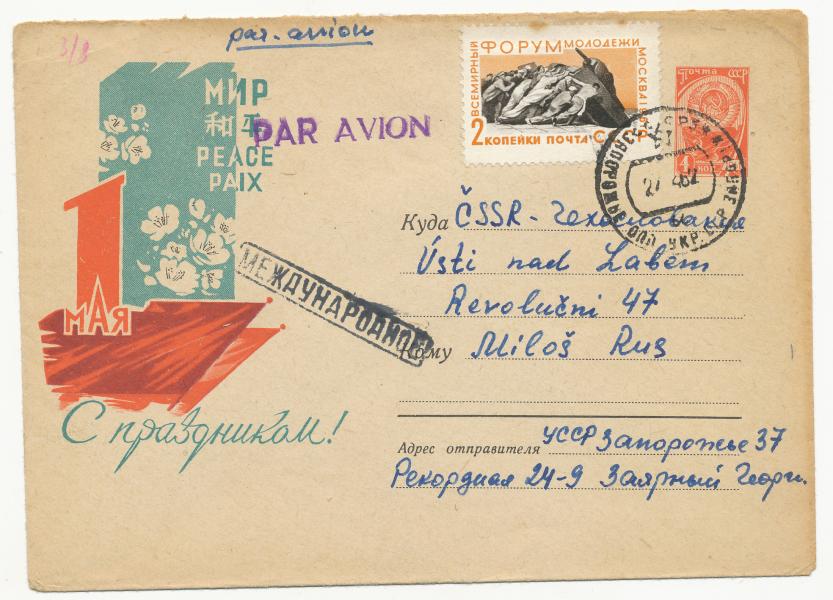 3/8
par. avion
ВСЕМИРНЫЙ
ФОРУМ МОЛОДЕЖИ
МОСКВА
2 КОПЕЙКИ ПОЧТА
Почта СССР
4 коп.
МИР
和平
PEACE
PAIX
PAR AVION
1
МАЯ
С праздником!
МЕЖДУНАРОДНОЕ
ЗАПОРОЖЬЕ
УКР.
Куда ČSSR - Чехословакия
Ústi nad Labem
Revoluční 47
Кому Miloš Rus
Адрес отправителя УССР Запорожье 37
Рекордная 24-9 Заярный Георг.